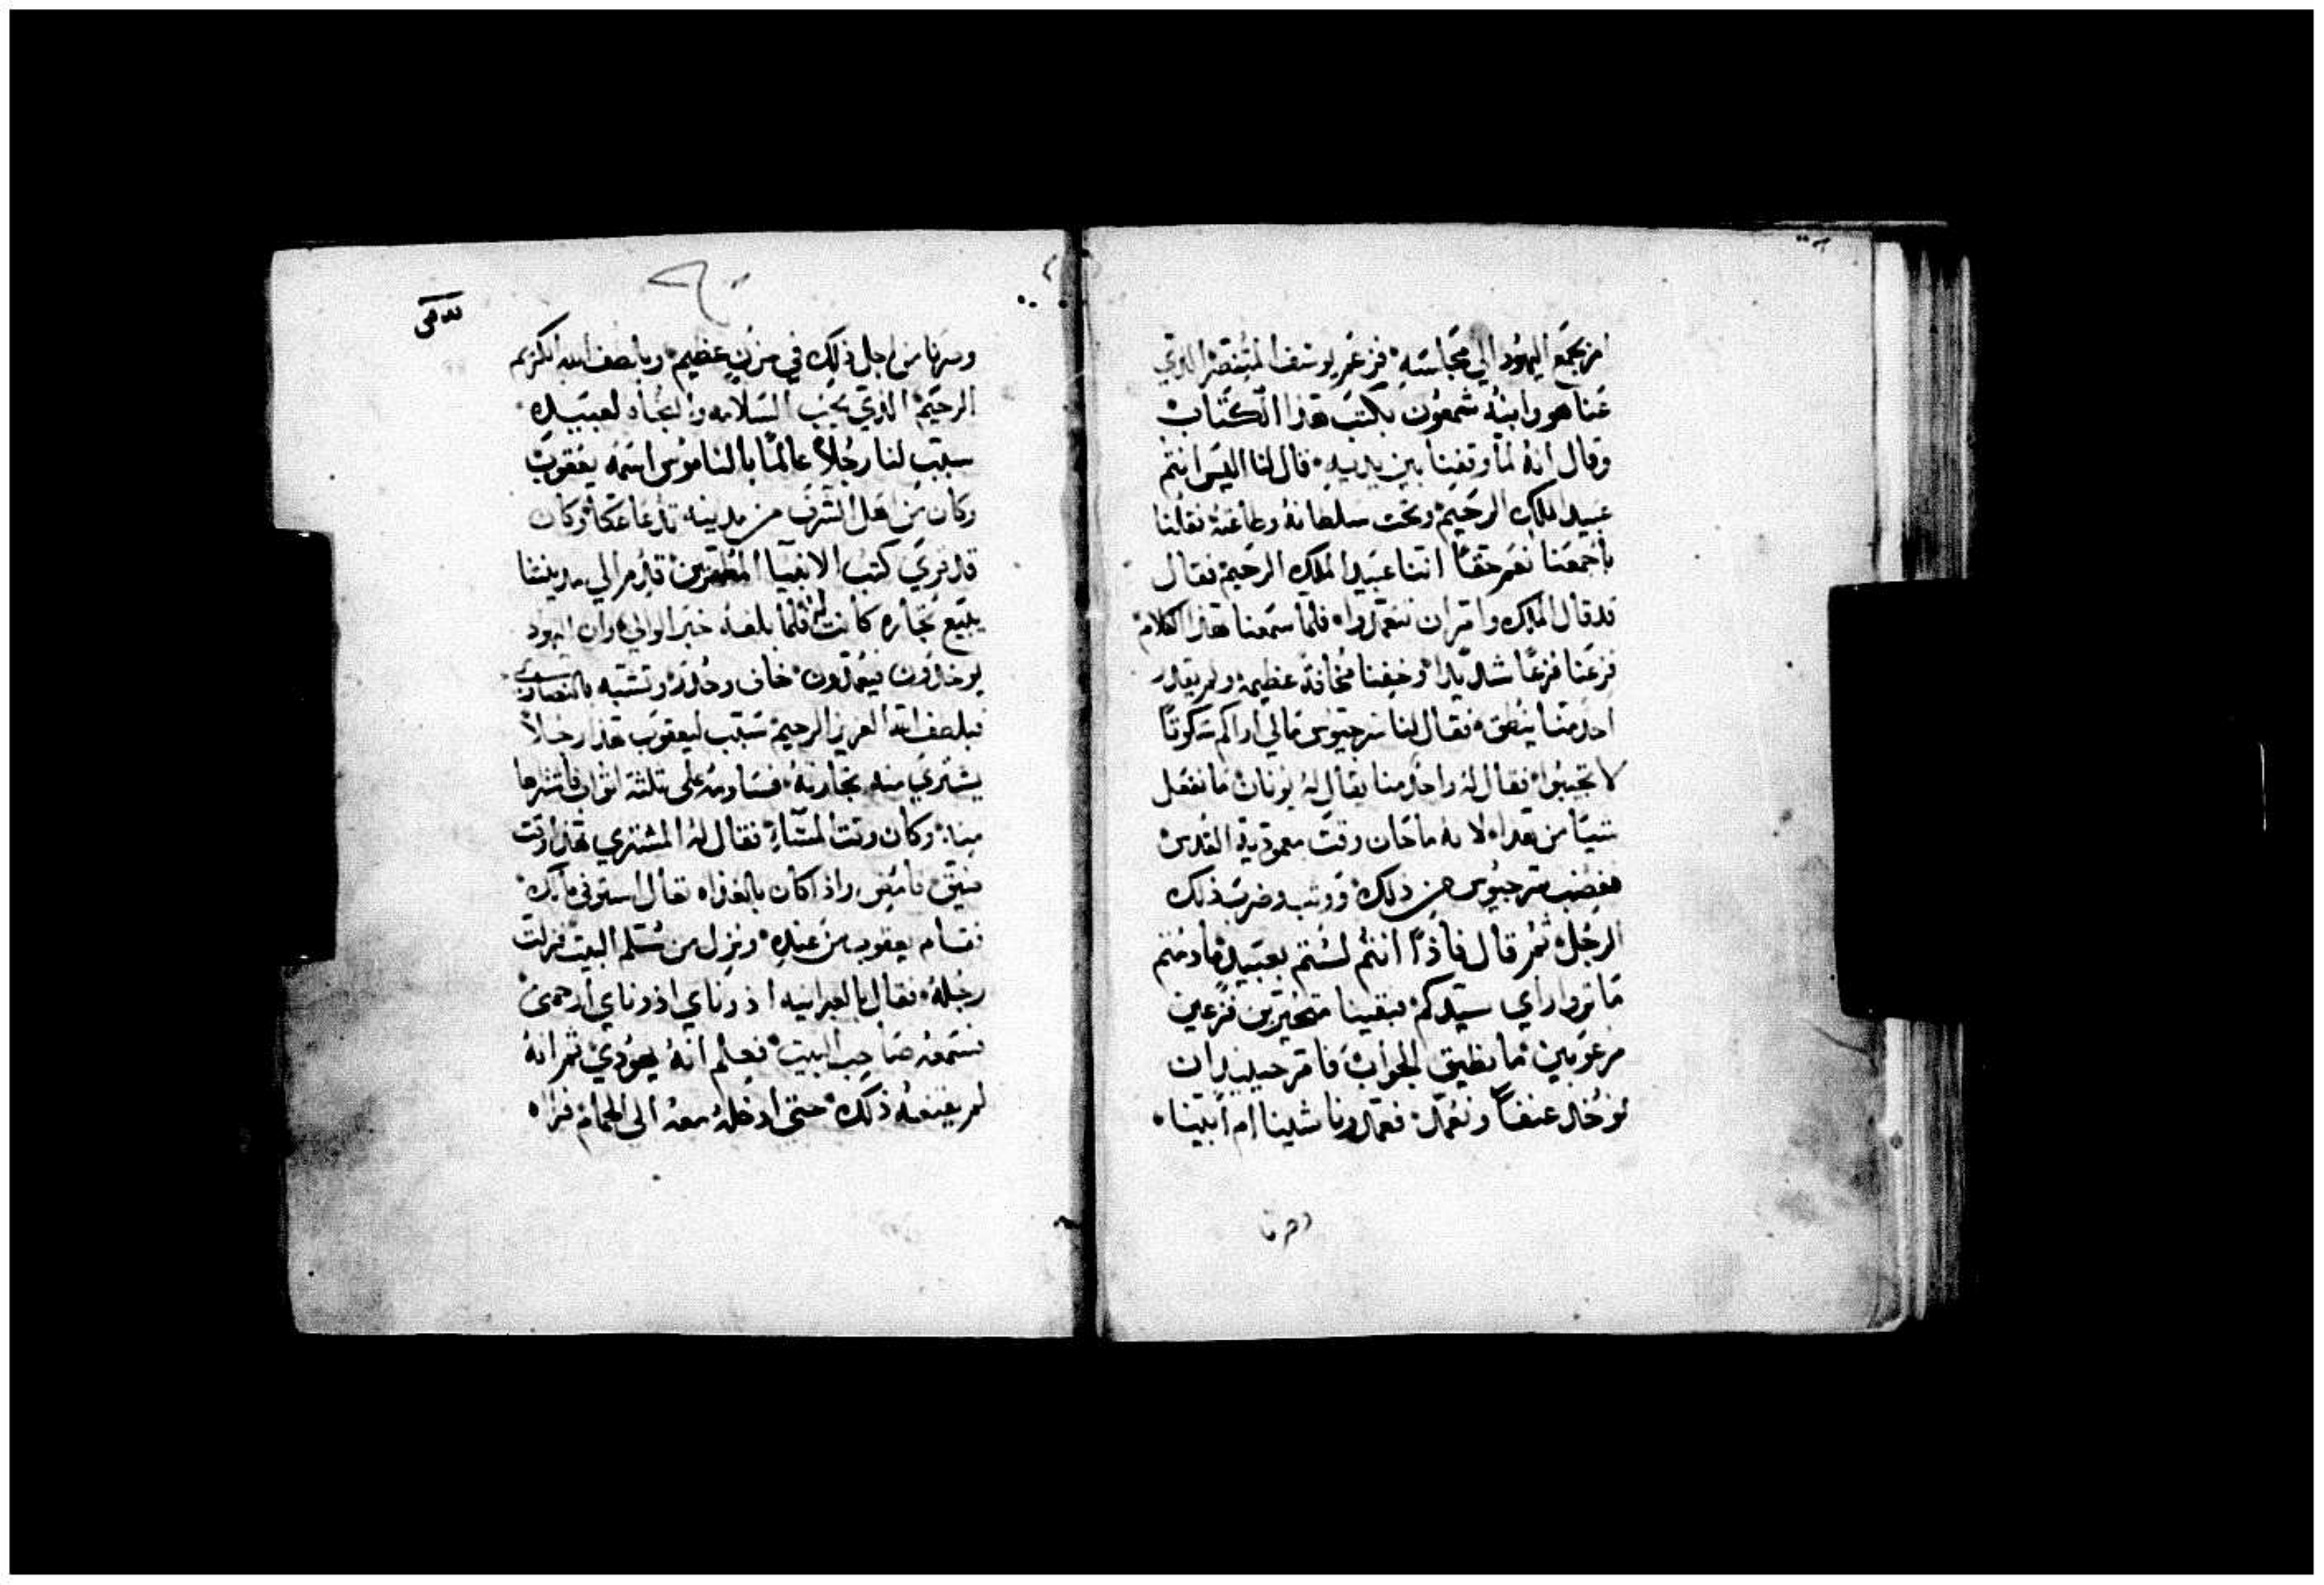 امر بجمع اليهود الي مجالسته فزعم يوسف المتنصر الذي
عنا هو وابنه شمعون بكتب هذا الكتاب
وقال انه لما وقفنا بين يديه قال لنا اليس انتم
عبيد الملك الرحيم وتحت سلطانه وطاعته فقلنا
باجمعنا نعم حقا اننا عبيد الملك الرحيم فقال
قد قال الملك وامر ان تتعمدوا فلما سمعنا هذا الكلام
فزعنا فزعا شديدا وخفنا مخافة عظيمه ولم يقدر
احد منا ينطق فقال لنا سرجيوس مالي اراكم سكوتا
لا تجيبوا فقال له واحد منا يقال له يونان ما نفعل
شيا من هذا لانه ما حان وقت معمودية القدس
فغضب سرجيوس من ذلك ووثب وضرب ذلك
الرجل ثم قال فاذا انتم لستم بعبيد
ما تروا راي سيدكم فبقينا متحيرين فزعين
مرعوبين ما نطيق الجواب فامر حينيذ ان
نوخذ عنفا ونعمد فعمدونا شينا ام ابينا
وصرنا من اجل ذلك في حزن عظيم وبلطف الله الكريم
الرحيم الذي يحب السلامه والنجاه لعبيده
سبب لنا رجلا عالما بالناموس اسمه يعقوب
وكان من اهل الشرف من مدينه تدعا عكا وكان
قد قري كتب الانبيا المطهرين قدم الي مدينتنا
يبيع تجاره كانت له فلما بلغه خبر الوالي وان اليهود
يوخذون فيعمدون خاف وحذر وتشبه بالنصاري
فبلطف الله العزيز الرحيم سبب ليعقوب هذا رجلا
يشتري منه تجارته فساومه علي ثلثة اثواب فاشتراها
منه وكان وقت المسآء فقال له المشتري هذا وقت
ضيق فامض واذا كان بالغداه تعال استوفي مالك
فقام يعقوب من عنده ونزل من سلم البيت فزلت
رجله فقال بالعبرانيه اذوناي اذوناي ارحمني
فسمعه صاحب البيت فعلم انه يهودي ثم انه
لم يقنعه ذلك حتي ادخله معه الي الحمام فراه